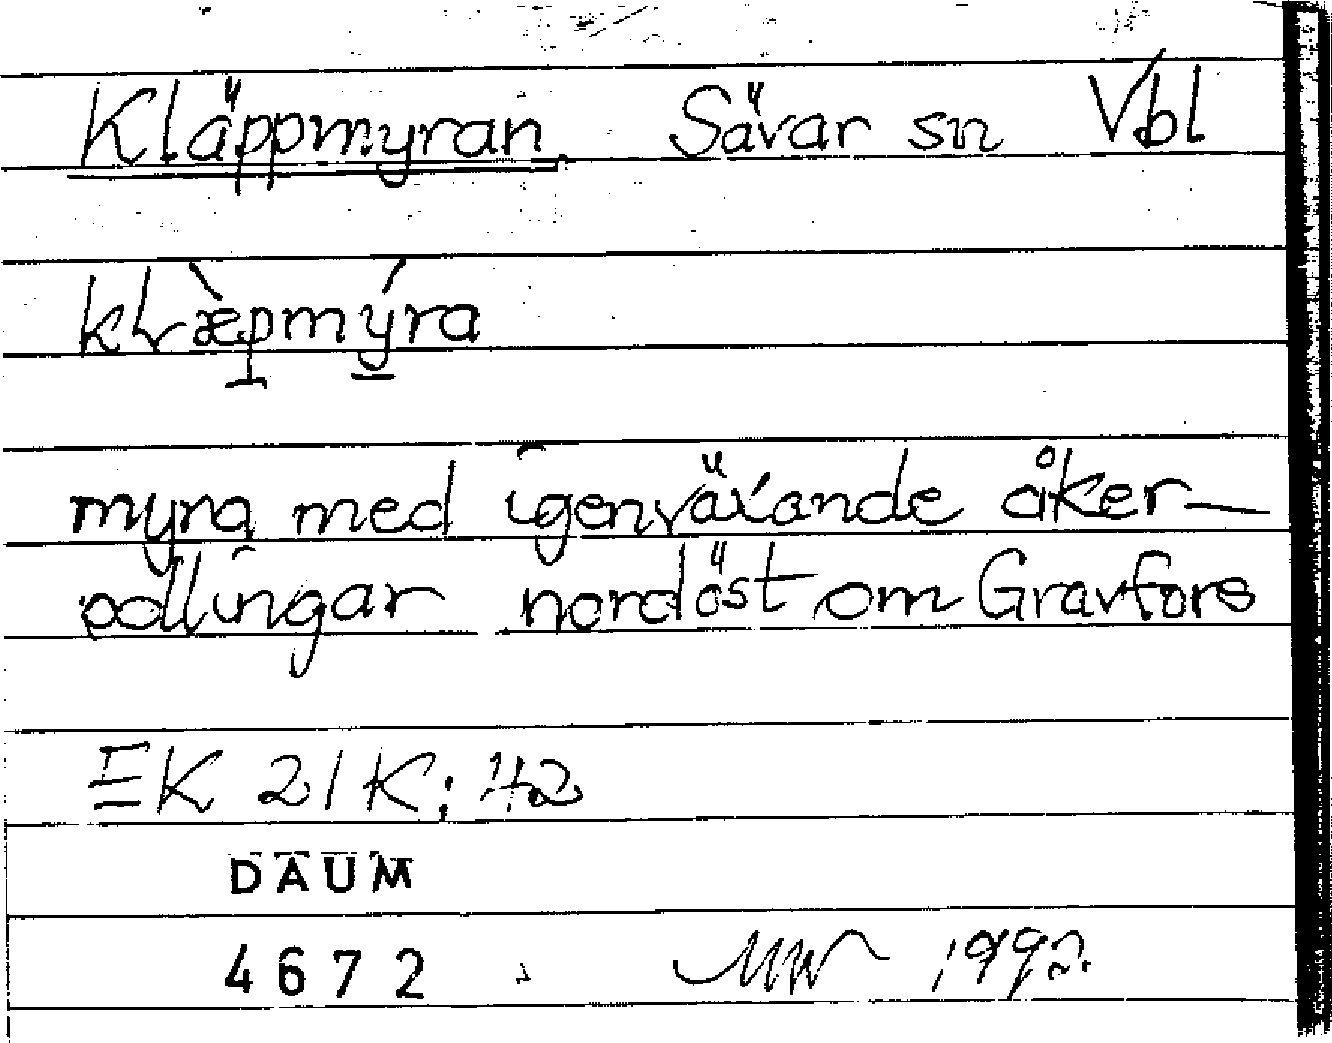 Kläppmyran Sävar sn Vbl
kLæ̀pmýra
myra med igenväxande åker-
odlingar nordöst om Gravfors
EK 21K:42
DAUM
4672 MW 1992.